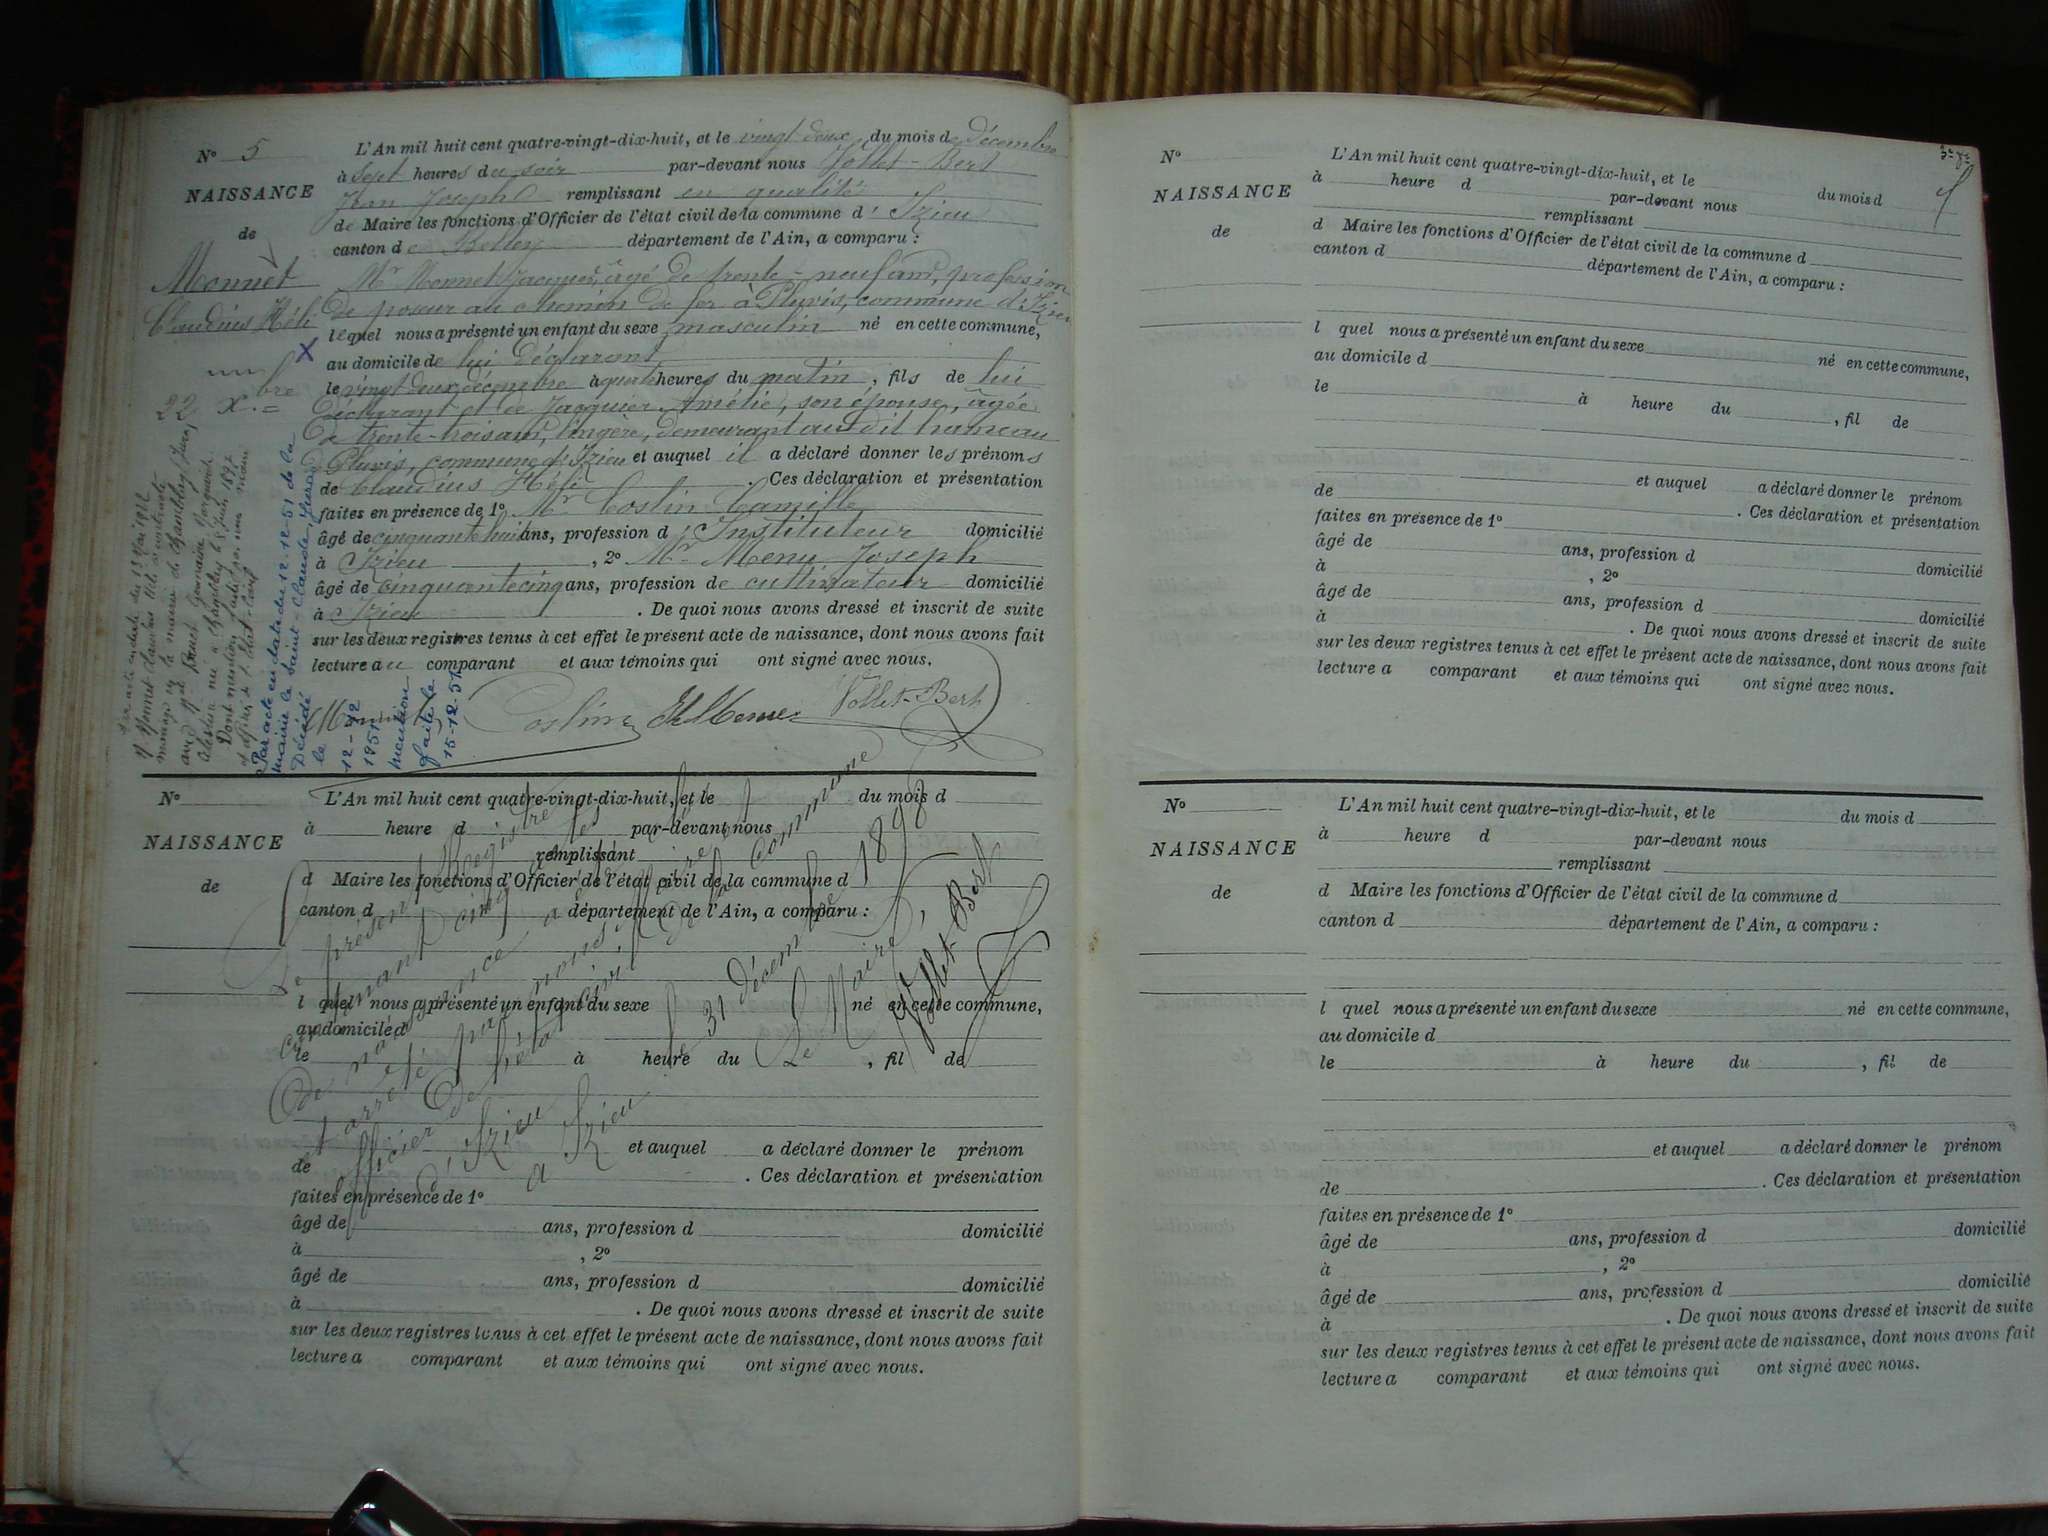 N° 5
NAISSANCE
de
Monnet
Claudius Héli
22 Xbre
L'An mil huit cent quatre-vingt-dix-huit, et le vingt deux du mois de Décembre
à sept heures du soir par-devant nous Vollet-Bert
Jean Joseph remplissant en qualité
de Maire les fonctions d'Officier de l'état civil de la commune d'Izieu
canton de Belley département de l'Ain, a comparu :
Mr Monnet Jacques, âgé de trente-neuf ans, profession
de poseur au chemin de fer à Pluvis, commune d'Izieu
lequel nous a présenté un enfant du sexe masculin né en cette commune,
au domicile de lui déclarant
le vingt deux décembre à quatre heures du matin, fils de lui
déclarant et de Jacquier Amélie, son épouse, âgée
de trente-trois ans, lingère, demeurant au dit hameau
de Pluvis, commune d'Izieu et auquel il a déclaré donner les prénoms
de Claudius Héli . Ces déclaration et présentation
faites en présence de 1° Mr Costin Camille
âgé de cinquante huit ans, profession d'Instituteur domicilié
à Izieu , 2° Mr Menu Joseph
âgé de cinquante cinq ans, profession de cultivateur domicilié
à Izieu . De quoi nous avons dressé et inscrit de suite
sur les deux registres tenus à cet effet le présent acte de naissance, dont nous avons fait
lecture au comparant et aux témoins qui ont signé avec nous.
Monnet Costin Menu Vollet-Bert
Par acte en date du 12-12-51 de la
mairie de Saint-Claude (Jura)
Décédé
le
12-12
1951
mention
faite le
15-12-51
N°
NAISSANCE
de
L'An mil huit cent quatre-vingt-dix-huit, et le du mois d
à heure d par-devant nous
remplissant
d Maire les fonctions d'Officier de l'état civil de la commune d
canton d département de l'Ain, a comparu :
l quel nous a présenté un enfant du sexe né en cette commune,
au domicile d
le à heure du , fil de
et auquel a déclaré donner le prénom
de . Ces déclaration et présentation
faites en présence de 1°
âgé de ans, profession d domicilié
à , 2°
âgé de ans, profession d domicilié
à . De quoi nous avons dressé et inscrit de suite
sur les deux registres tenus à cet effet le présent acte de naissance, dont nous avons fait
lecture a comparant et aux témoins qui ont signé avec nous.
Le présent Registre
de naissance a été
arrêté par nous Maire
officier de l'état civil de la Commune
d'Izieu
a Izieu le 31 décembre 1898
Le Maire,
Vollet-Bert
N°
NAISSANCE
de
L'An mil huit cent quatre-vingt-dix-huit, et le du mois d
à heure d par-devant nous
remplissant
d Maire les fonctions d'Officier de l'état civil de la commune d
canton d département de l'Ain, a comparu :
l quel nous a présenté un enfant du sexe né en cette commune,
au domicile d
le à heure du , fil de
et auquel a déclaré donner le prénom
de . Ces déclaration et présentation
faites en présence de 1°
âgé de ans, profession d domicilié
à , 2°
âgé de ans, profession d domicilié
à . De quoi nous avons dressé et inscrit de suite
sur les deux registres tenus à cet effet le présent acte de naissance, dont nous avons fait
lecture a comparant et aux témoins qui ont signé avec nous.
N°
NAISSANCE
de
L'An mil huit cent quatre-vingt-dix-huit, et le du mois d
à heure d par-devant nous
remplissant
d Maire les fonctions d'Officier de l'état civil de la commune d
canton d département de l'Ain, a comparu :
l quel nous a présenté un enfant du sexe né en cette commune,
au domicile d
le à heure du , fil de
et auquel a déclaré donner le prénom
de . Ces déclaration et présentation
faites en présence de 1°
âgé de ans, profession d domicilié
à , 2°
âgé de ans, profession d domicilié
à . De quoi nous avons dressé et inscrit de suite
sur les deux registres tenus à cet effet le présent acte de naissance, dont nous avons fait
lecture a comparant et aux témoins qui ont signé avec nous.